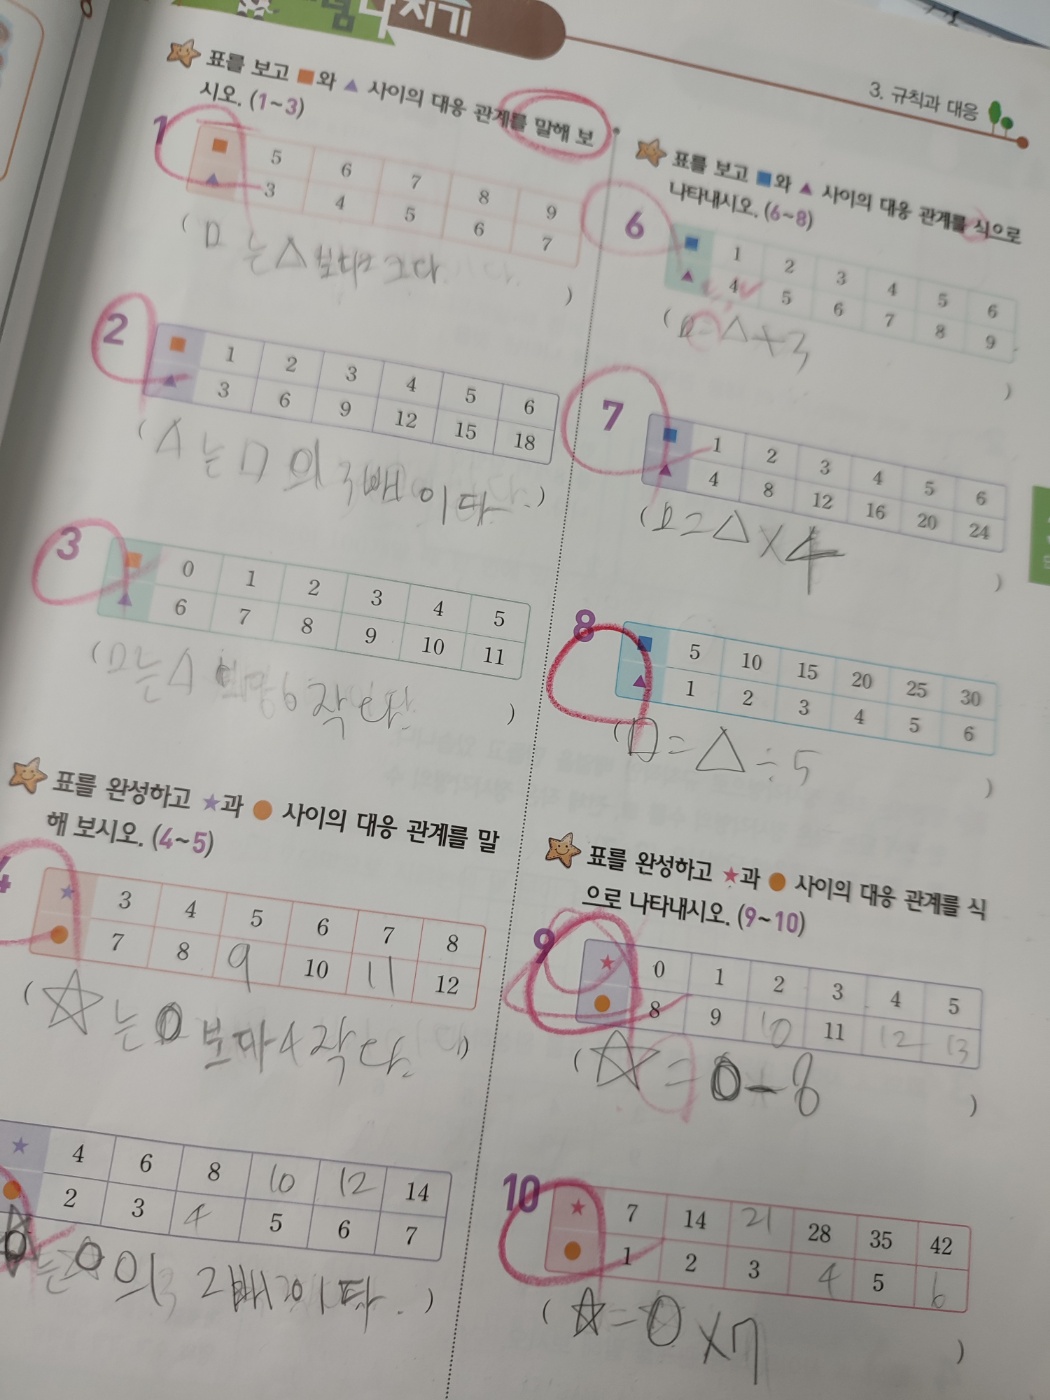 3. 규칙과 대응
표를 보고 ■와 ▲ 사이의 대응 관계를 말해 보
시오. (1~3)
1
■ 5 6 7 8 9
▲ 3 4 5 6 7
( □는 △보다 크다 )
2
■ 1 2 3 4 5 6
▲ 3 6 9 12 15 18
( △는 □의 3배이다. )
3
■ 0 1 2 3 4 5
▲ 6 7 8 9 10 11
( □는 △ 6 작다. )
표를 완성하고 ★과 ● 사이의 대응 관계를 말
해 보시오. (4~5)
4
★ 3 4 5 6 7 8
● 7 8 9 10 11 12
( ☆는 O보다 4 작다. )
★ 4 6 8 10 12 14
● 2 3 4 5 6 7
는 O의 2배이다. )
표를 보고 ■와 ▲ 사이의 대응 관계를 식으로
나타내시오. (6~8)
6
■ 1 2 3 4 5 6
▲ 4 5 6 7 8 9
( □=△+3 )
7
■ 1 2 3 4 5 6
▲ 4 8 12 16 20 24
( □=△×4 )
8
■ 5 10 15 20 25 30
▲ 1 2 3 4 5 6
( □=△÷5 )
표를 완성하고 ★과 ● 사이의 대응 관계를 식
으로 나타내시오. (9~10)
9
★ 0 1 2 3 4 5
● 8 9 10 11 12 13
( ☆=O-8 )
10
★ 7 14 21 28 35 42
● 1 2 3 4 5 6
( ☆=O×7 )